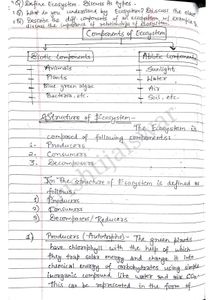 Q) Define Ecosystem. Discuss its types.
Q) What do you understand by Ecosystem? Discuss the
Q) Describe the diff components of an ecosystem w/ examples
discuss the importance of relationships of Ecosystem.
Components of Ecosystem
Biotic Components
Abiotic Components
- Animals
- Sunlight
- Plants
- Water
- Blue green algae
- Air
- Bacteria etc.
- Soil, etc.
Structure of Ecosystem -
The Ecosystem is
composed of following components:
1. Producers
2. Consumers
3. Decomposers
The structure of Ecosystem is defined as
follows:
1) Producers
2) Consumers
3) Decomposers/Reducers
1) Producers (Autotrophs) - The green plants
have chlorophyll with the help of which
they trap solar energy and change it into
chemical energy of carbohydrates using simple
inorganic compound like water and CO2
this can be represented in the form of